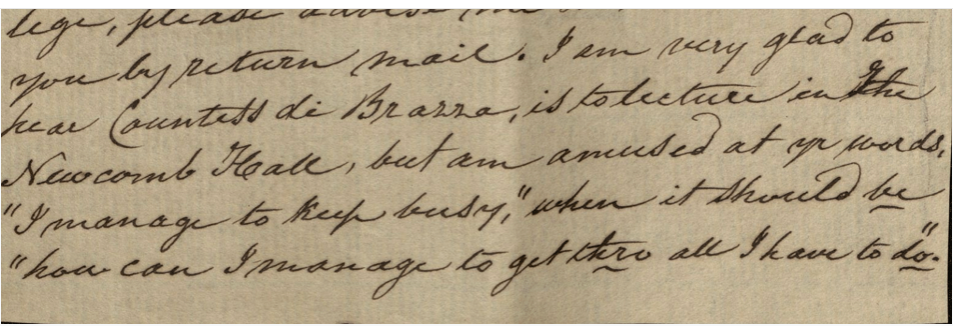 lege, please advise me
you by return mail. I am very glad to
hear Countess di Brazza, is to lecture in the
Newcomb Hall, but am amused at yr words,
"I manage to keep busy," when it should be
"how can I manage to get thro all I have to do".